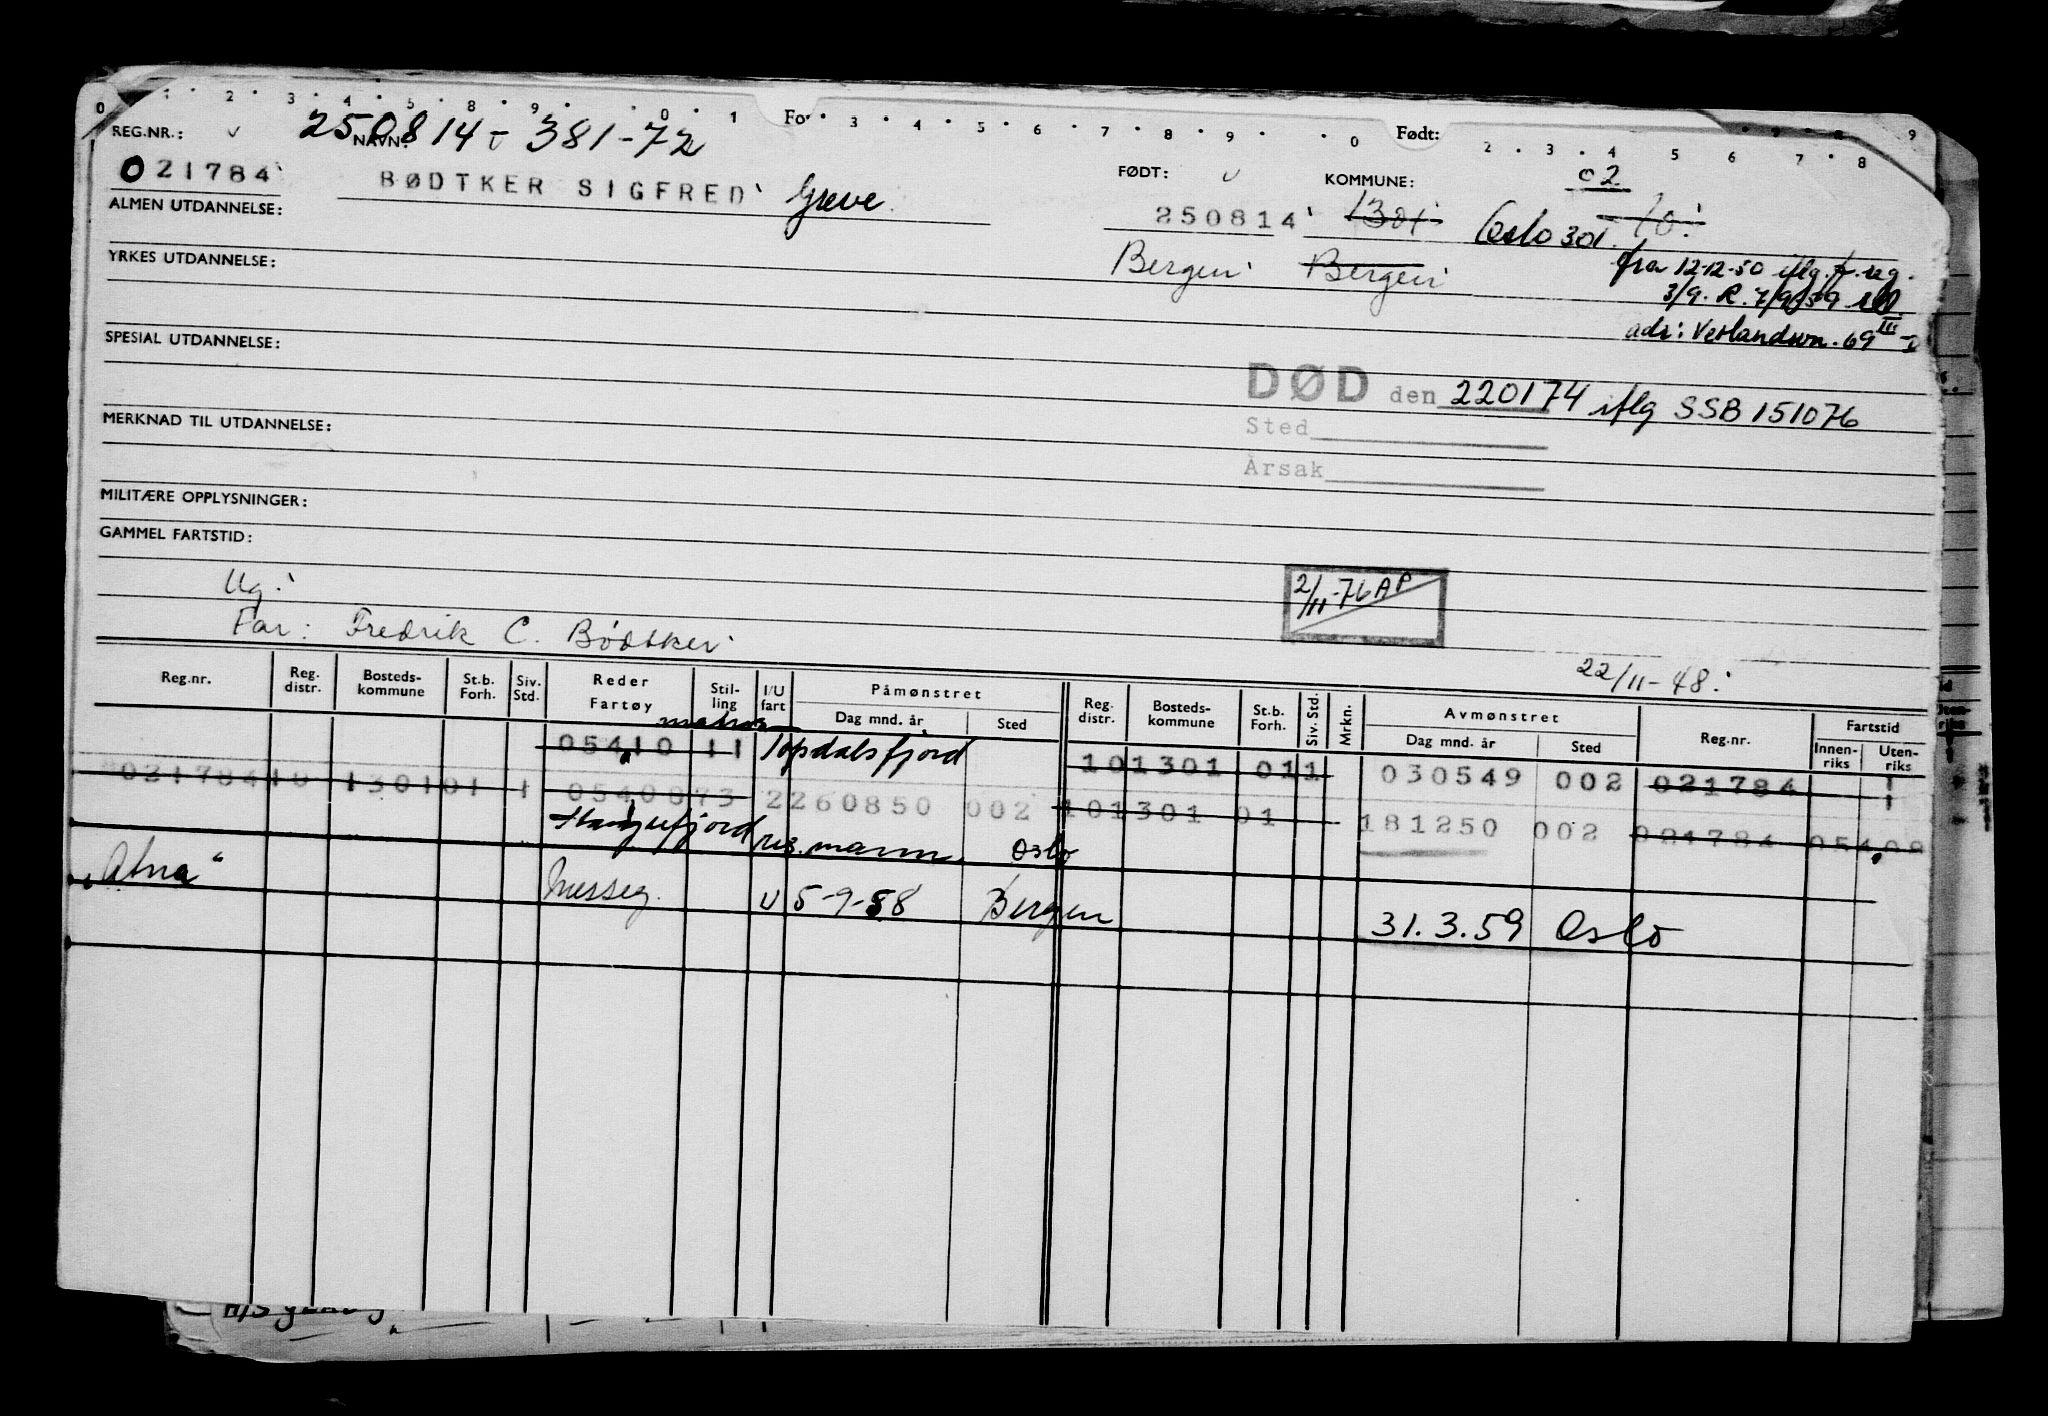 0 1 2 3 4 5 8 9 0 1 Fo: 3 4 5 6 7 8 9 0 Født: 2 3 4 5 6 7 8 9
REG.NR.: NAVN: 250814 - 381-72 FØDT: KOMMUNE: 02
021784 BØDTKER SIGFRED Greve. 250814 1301 Oslo 301. 10.
ALMEN UTDANNELSE:
Bergen Bergen fra 12-12-50 iflg. f. reg.
YRKES UTDANNELSE: 3/9. R. 7/9/59
adr: Vetlandsvn. 69 III
SPESIAL UTDANNELSE:
DØD den 220174 iflg SSB 151076
MERKNAD TIL UTDANNELSE: Sted
Årsak
MILITÆRE OPPLYSNINGER:
GAMMEL FARTSTID:
Ug. 2/11-76 AP
Far: Fredrik C. Bødtker
22/11-48.
Reg.nr. Reg. distr. Bosteds-kommune St.b. Forh. Siv. Std. Reder Fartøy Stil-ling I/U fart Påmønstret Dag mnd. år Sted Reg. distr. Bosteds-kommune St.b. Forh. Siv. Std. Mrkn. Avmønstret Dag mnd. år Sted Reg.nr. Fartstid Innen-riks Uten-riks
matros
05410 11 Topdalsfjord 101301 011 030549 002 021784 1
021784 10 130101 1 05408 73 2260850 002 101301 01 181250 002 021784 05408
res. mann. Oslo
"Atna" Messeg. U 5-9-58 Bergen 31.3.59 Oslo